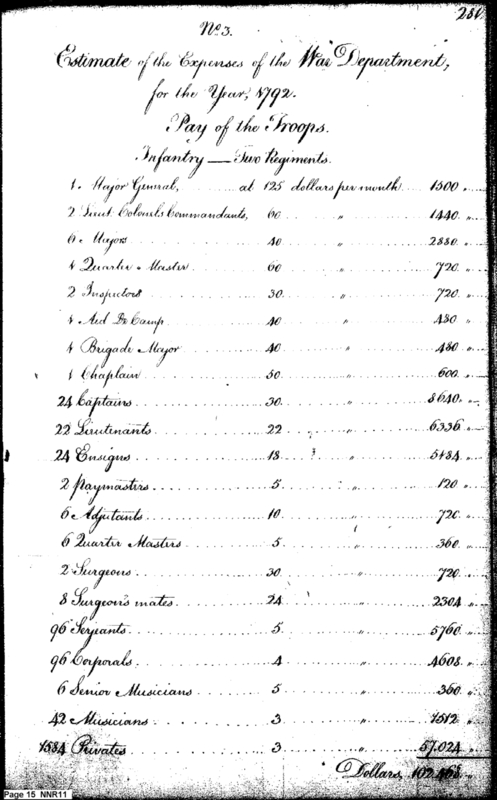 No. 3.
Estimate of the Expenses of the War Department,
for the Year, 1792.
Pay of the Troops.
Infantry — Two Regiments.
1. Major General, at 125 dollars per month 1500 "
2 Lieut. Colonels Commandants, 60 " 1440 "
6 Majors 40 " 2880 "
1 Quarter-Master 60 " 720 "
2 Inspectors 30 " 720 "
1 Aid De Camp 40 " 480 "
1 Brigade Mayor 40 " 480 "
1 Chaplain 50 " 600 "
24 Captains 30 " 8640 "
22 Lieutenants 22 " 6336 "
24 Ensigns 18 " 5184 "
2 paymasters 5 " 120 "
6 Adjutants 10 " 720 "
6 Quarter Masters 5 " 360 "
2 Surgeons 30 " 720 "
8 Surgeon's mates 24 " 2304 "
96 Serjeants 5 " 5760 "
96 Corporals 4 " 4608 "
6 Senior Musicians 5 " 360 "
42 Musicians 3 " 1512 "
1584 Privates 3 " 57.024 "
Dollars, 102.468 "
Page 15 NNR11